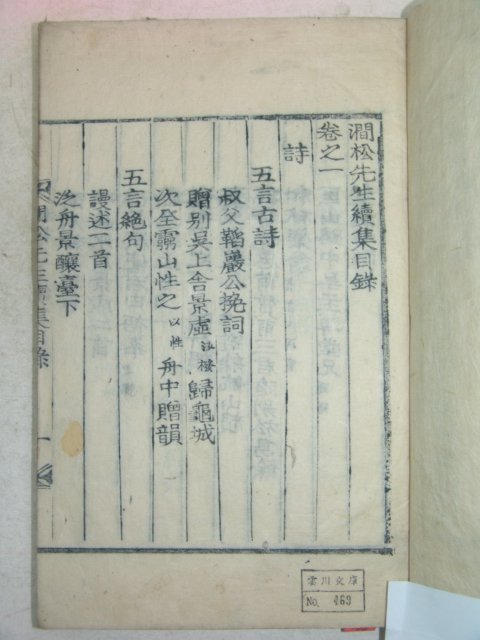 澗松先生續集目錄
卷之一
詩
五言古詩
叔父韜巖公挽詞
贈別吳上舍景虛汝稳歸龜城
次全霽山性之以性舟中贈韻
五言絶句
謾述二首
泛舟景釀臺下
澗松先生續集目錄
一
雲川文庫
No. 463